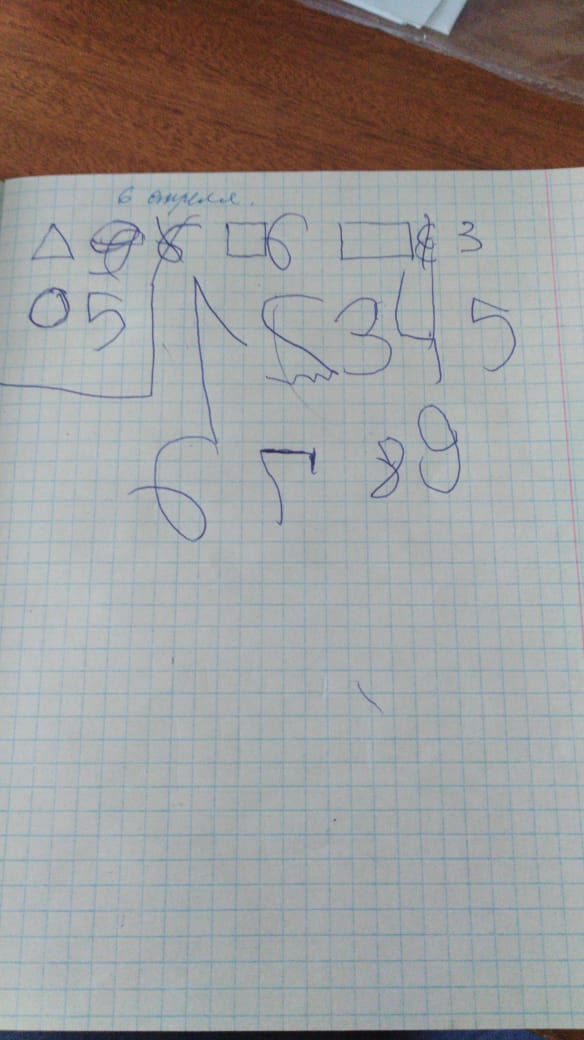 6 апреля.
6 3
5 1 2 3 4 5
6 7 8 9